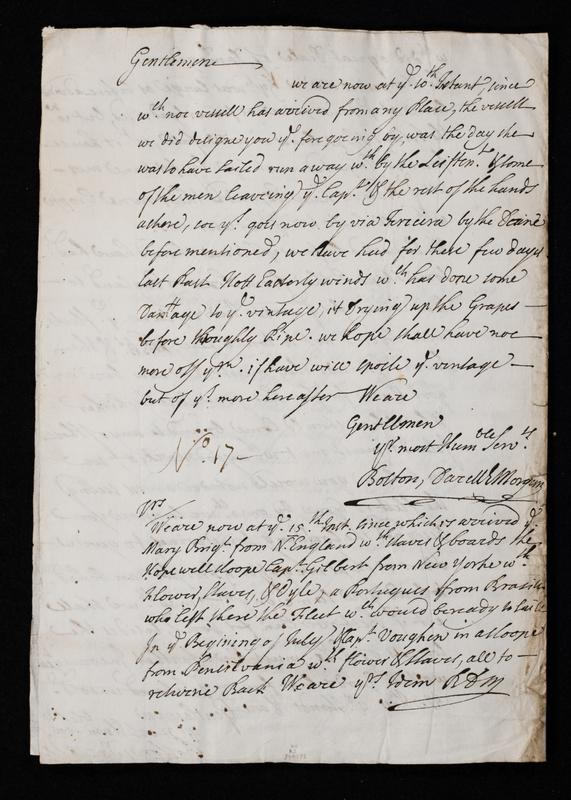 Gentlemene
we are now at ye. 10th. Instant, since
wch. noe vessell has arrived from any Place, the vessell
we did designe you ye. foregoeing by, was the day she
was to have sailed run away wth. by the & some
of the men leaveing ye. Capt. & the rest of the hands
ashere, soe yt. goes now by via Tercera by the
before mentioned, we have had for these few days
last Past Hott Easterly winds wch. has done some
Damage to ye. vintage, it drying up the Grapes
before thoughly Ripe. we hope shall have noe
more off ym. if have will spoile ye. vintage
but of yt. more hereafter We are
Gentlemen
yr. most Humble Servts.
No. 17
Bolton, Darell & Morgan
Yrs
We are now at ye. 15th. Inst. since which is arrived ye.
Mary Brigt. from N. England wth. staves & boards the
Hopewell sloope Capt. Gilbert from New Yorke wth.
flower, staves, & Oyle, a Portugues from Brasile
who left there the Fleet wch. would be ready to saile
In ye Begining of July & Capt. Voughen in a sloope
from Pensilvania wth. flower & staves, all to
returne Back We are yrs. Idem B D M